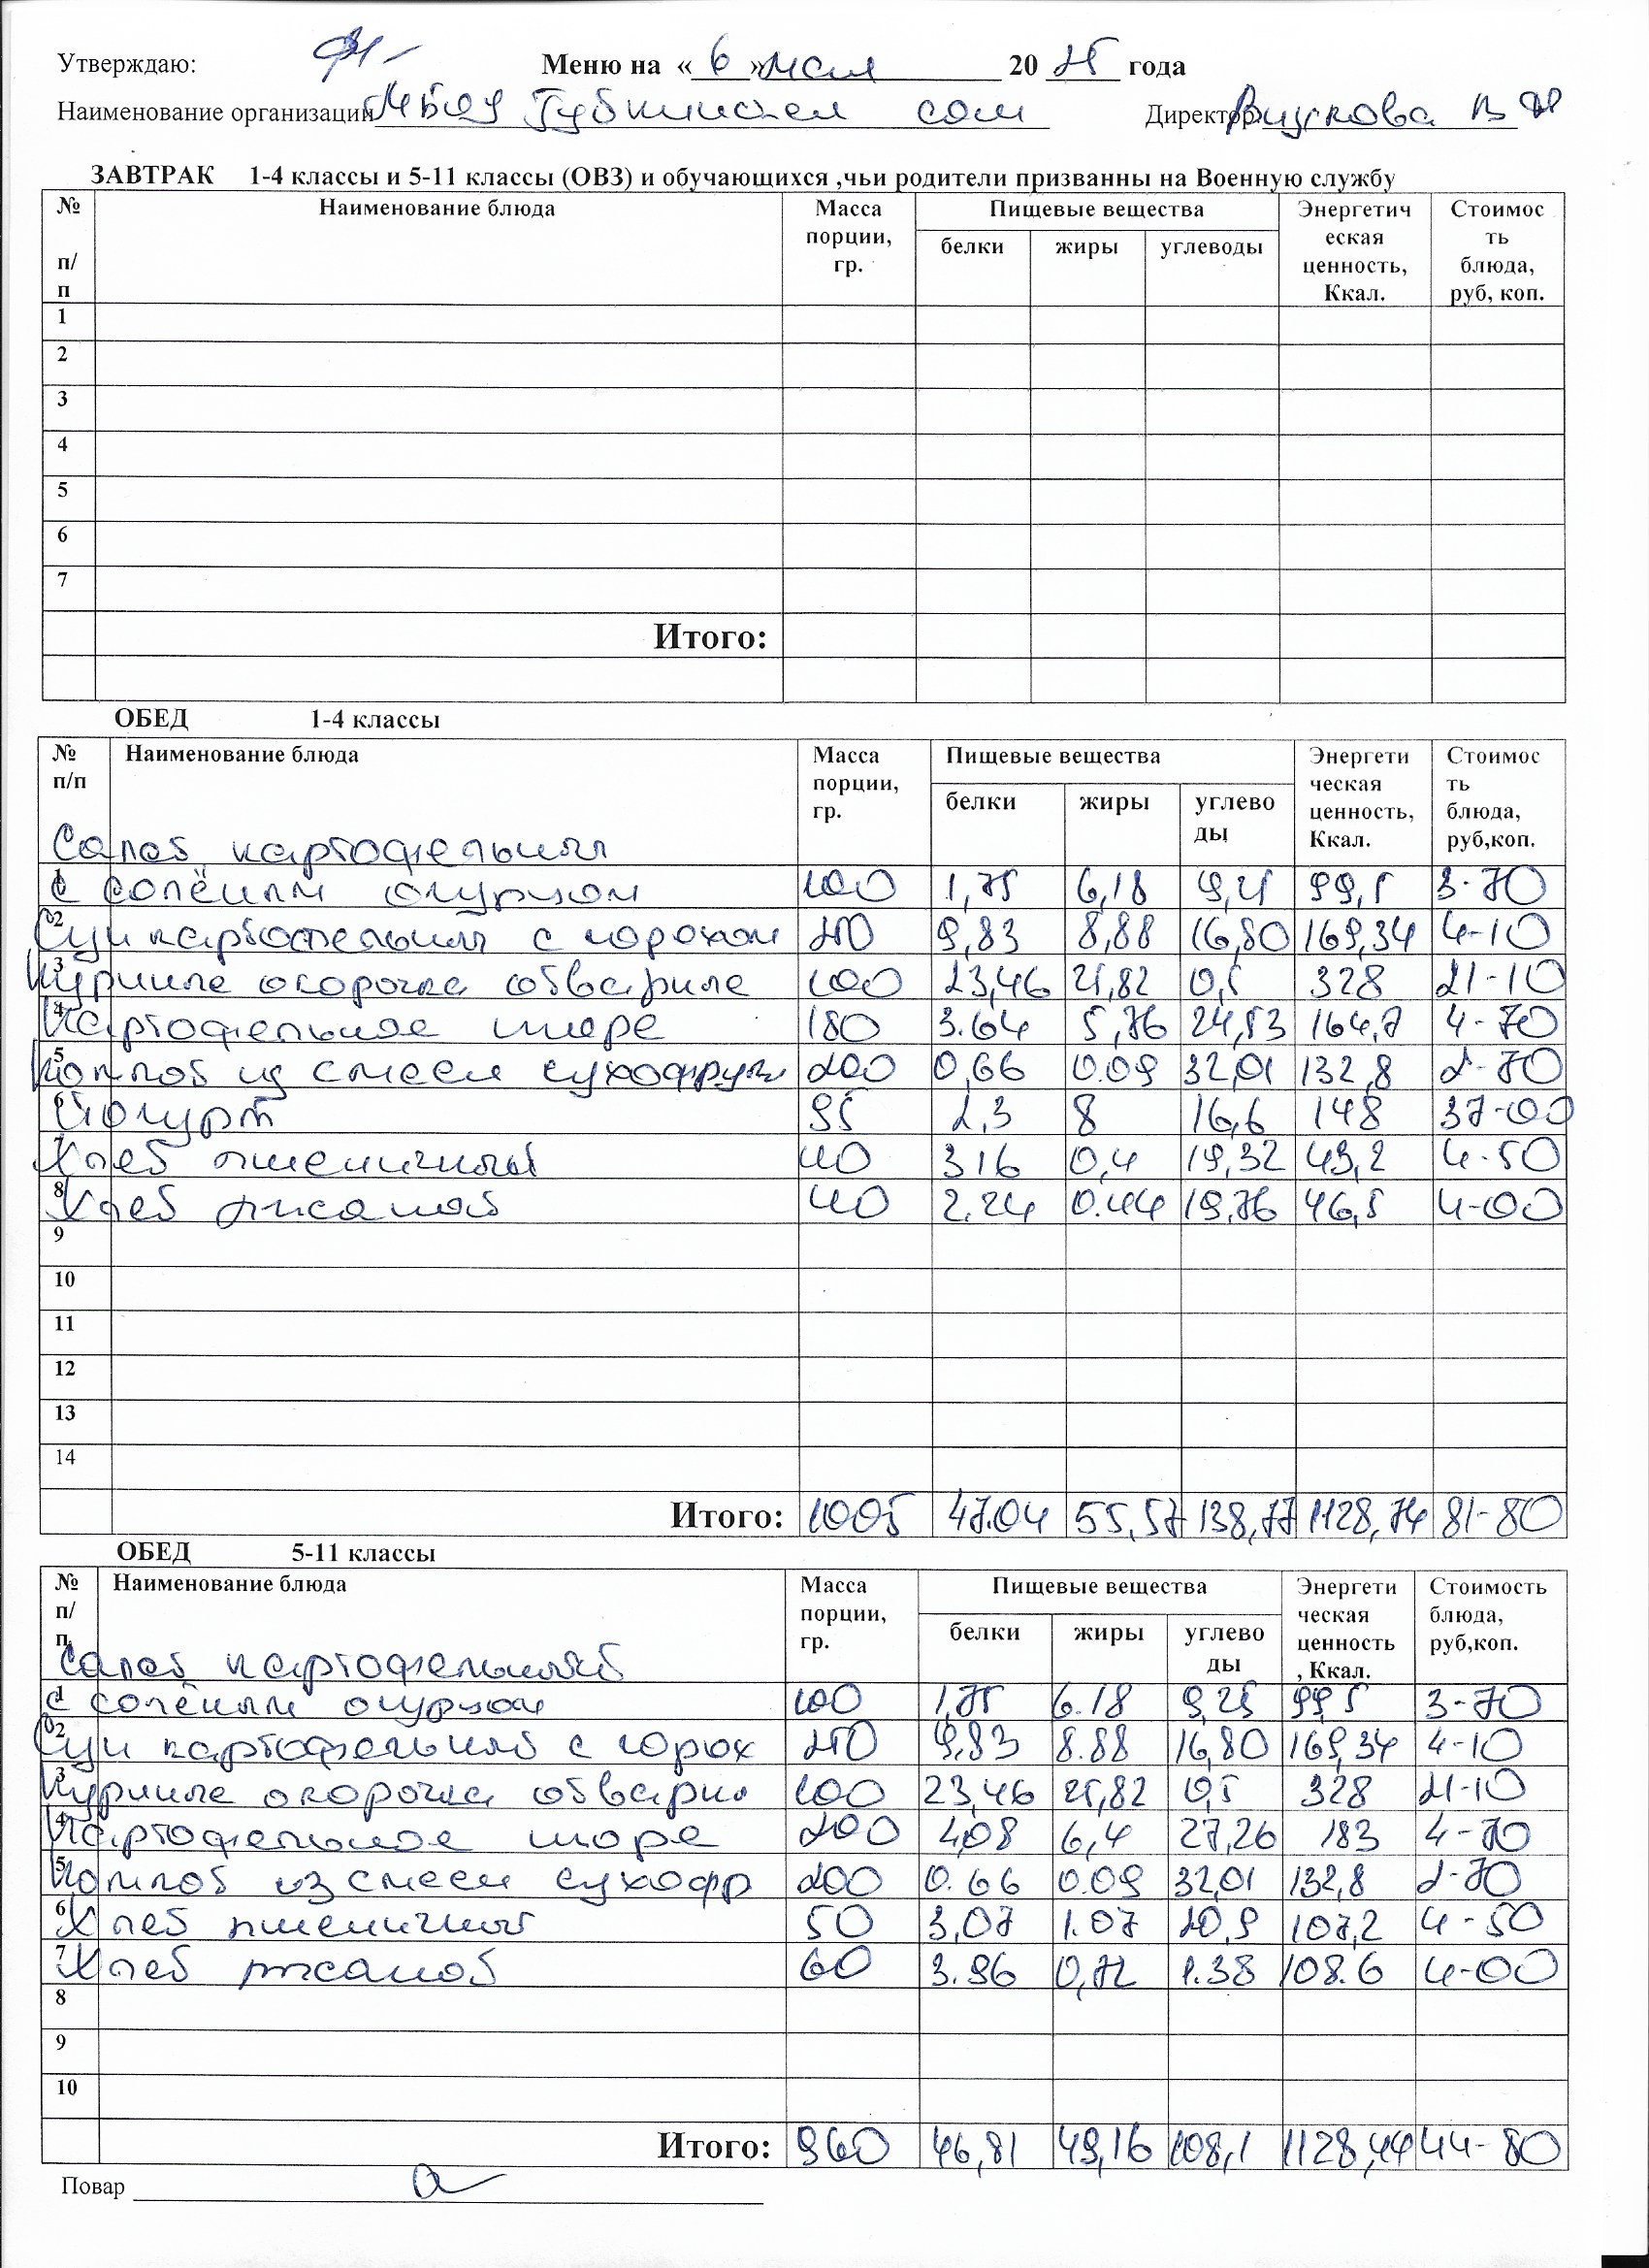 Утверждаю: Меню на «6» мая 2025 года
Наименование организации МБОУ Губкинская сош Директор В Ф
ЗАВТРАК 1-4 классы и 5-11 классы (ОВЗ) и обучающихся ,чьи родители призванны на Военную службу
№ п/п Наименование блюда Масса порции, гр. Пищевые вещества Энергетическая ценность, Ккал. Стоимость блюда, руб, коп.
белки жиры углеводы
1
2
3
4
5
6
7
Итого:
ОБЕД 1-4 классы
№ п/п Наименование блюда Масса порции, гр. Пищевые вещества Энергетическая ценность, Ккал. Стоимость блюда, руб,коп.
белки жиры углеводы
Салат картофельный
1 с солёным огурцом 100 1,75 6,18 9,25 99,5 3-70
2 Суп картофельный с горохом 250 9,83 8,88 16,80 169,34 4-10
3 Куриные окорочка отварные 100 23,46 25,82 0,5 328 21-10
4 Картофельное пюре 180 3.64 5,76 24,53 164,7 4-70
5 Компот из смеси сухофрук 200 0,66 0.09 32,01 132,8 2-70
6 Йогурт 95 2,3 8 16,6 148 37-00
7 Хлеб пшеничный 40 316 0,4 19,32 49,2 4-50
8 Хлеб ржаной 40 2.24 0.44 19,76 46,5 4-00
9
10
11
12
13
14
Итого: 1005 47.04 55,57 138,77 1128,74 81-80
ОБЕД 5-11 классы
№ п/п Наименование блюда Масса порции, гр. Пищевые вещества Энергетическая ценность, Ккал. Стоимость блюда, руб,коп.
белки жиры углеводы
Салат картофельный
1 с солёным огурцом 100 1,75 6.18 9,25 99,5 3-70
2 Суп картофельный с горох 250 9,83 8.88 16,80 169,34 4-10
3 Куриные окорочка отварны 100 23,46 25,82 0,5 328 21-10
4 Картофельное пюре 200 4,08 6,4 27,26 183 4-70
5 Компот из смеси сухофр 200 0.66 0.09 32,01 132,8 2-70
6 Хлеб пшеничный 50 3,07 1.07 20,9 107,2 4-50
7 Хлеб ржаной 60 3.96 0,72 1.38 108.6 4-00
8
9
10
Итого: 960 46,81 49,16 108,1 1128,44 44-80
Повар